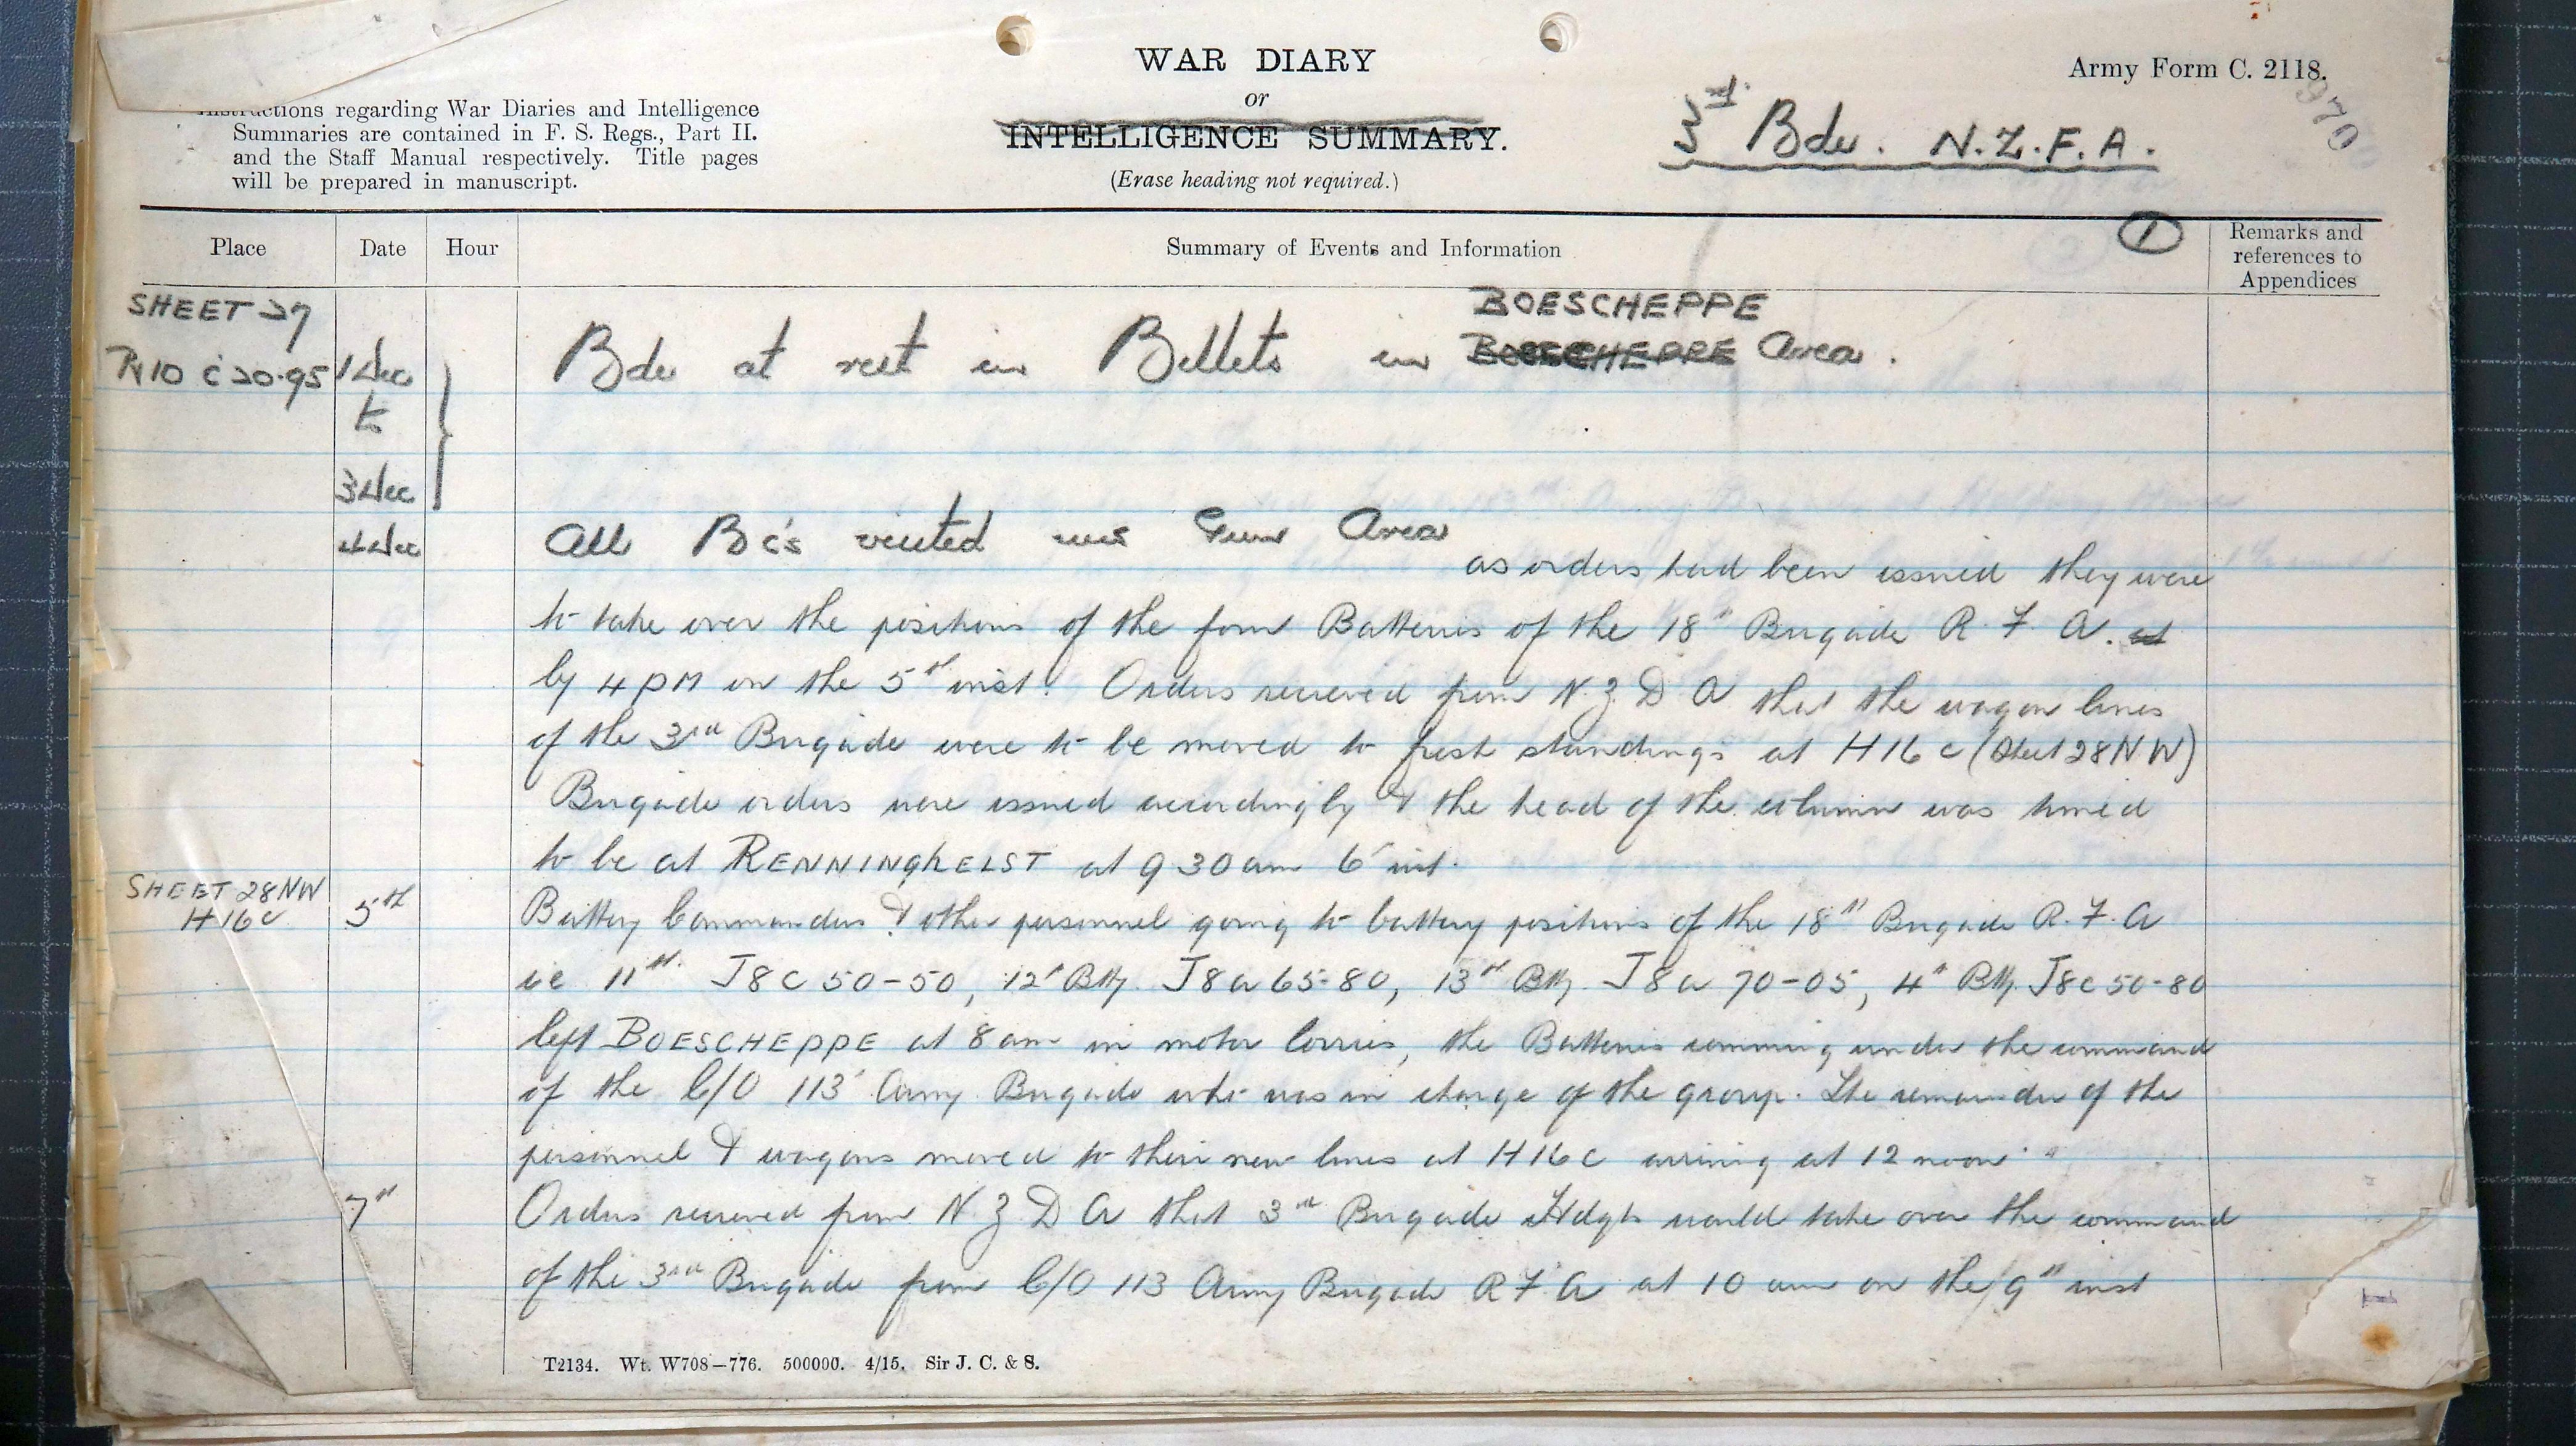 WAR DIARY
or
INTELLIGENCE SUMMARY.
(Erase heading not required.)
Army Form C. 2118.
Instructions regarding War Diaries and Intelligence
Summaries are contained in F. S. Regs., Part II.
and the Staff Manual respectively. Title pages
will be prepared in manuscript.
3rd Bde. N.Z.F.A.
970
1
Place Date Hour Summary of Events and Information Remarks and references to Appendices
SHEET 27
R10 c 20.95 1 Dec to 3 Dec
BOESCHEPPE
Bde at rest in Billets in BOESCHEPPE Area.
4 Dec All Bc's visited new Gun Area
as orders had been issued they were
to take over the positions of the four Batteries of the 18th Brigade R. F. A. at
by 4 PM on the 5th inst. Orders recieved from N. Z. D A that the wagon lines
of the 3rd Brigade were to be moved to fresh standings at H 16 c (Sheet 28 N W)
Brigade orders were issued accordingly & the head of the column was timed
to be at RENNINGHELST at 9 30 am 6th inst.
SHEET 28 NW
H 16 c 5th Battery Commanders & other personnel going to battery positions of the 18th Brigade R. F. A
ie 11th J 8 C 50-50, 12th Bty. J 8 a 65-80, 13th Bty. J 8 a 70-05, 4th Bty. J 8 c 50-80
left BOESCHEPPE at 8 am in motor lorries, the Batteries comming under the command
of the C/O 113th Army Brigade who was in charge of the group. The remainder of the
personnel & wagons moved to their new lines at H 16 C arriving at 12 noon.
7th Orders recieved from N. Z. D A that 3rd Brigade Hdqts would take over the command
of the 3rd Brigade from C/O 113 Army Brigade R F A at 10 am on the 9th inst
T2134. Wt. W708–776. 500000. 4/15. Sir J. C. & S.
1